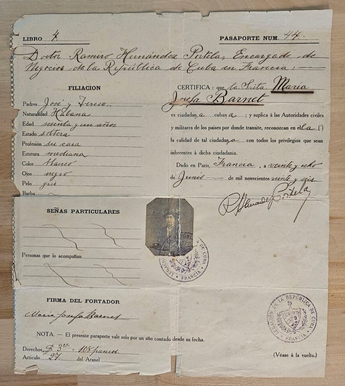 LIBRO X
PASAPORTE NUM. 44.
Doctor Ramiro Hernández Portela, Encargado de
Negocios de la República de Cuba en Francia:
FILIACION
Padres José y Teresa
Naturalidad Habana
Edad treinta y un años
Estado soltera
Profesión su casa
Estatura mediana
Color blanco
Ojos negro
Pelo
Barba
SEÑAS PARTICULARES
Personas que lo acompañan
FIRMA DEL PORTADOR
Maria Josefa Barnet
CERTIFICA: que la Srita María
Josefa Barnet
es ciudadana cubana; y suplica á las Autoridades civiles
y militares de los países por donde transite, reconozcan en ella ( )
la calidad de tal ciudadana, con todos los privilegios que sean
inherentes á dicha ciudadanía.
Dado en París, Francia, veinte y ocho
de Junio de mil novecientos veinte y seis
R. Hernández Portela
LEGACION DE LA REPUBLICA DE CUBA
FRANCIA
NOTA. — El presente pasaporte vale solo por un año contado desde su fecha.
Derechos $
Artículo 27. del Arancel
(Véase á la vuelta).